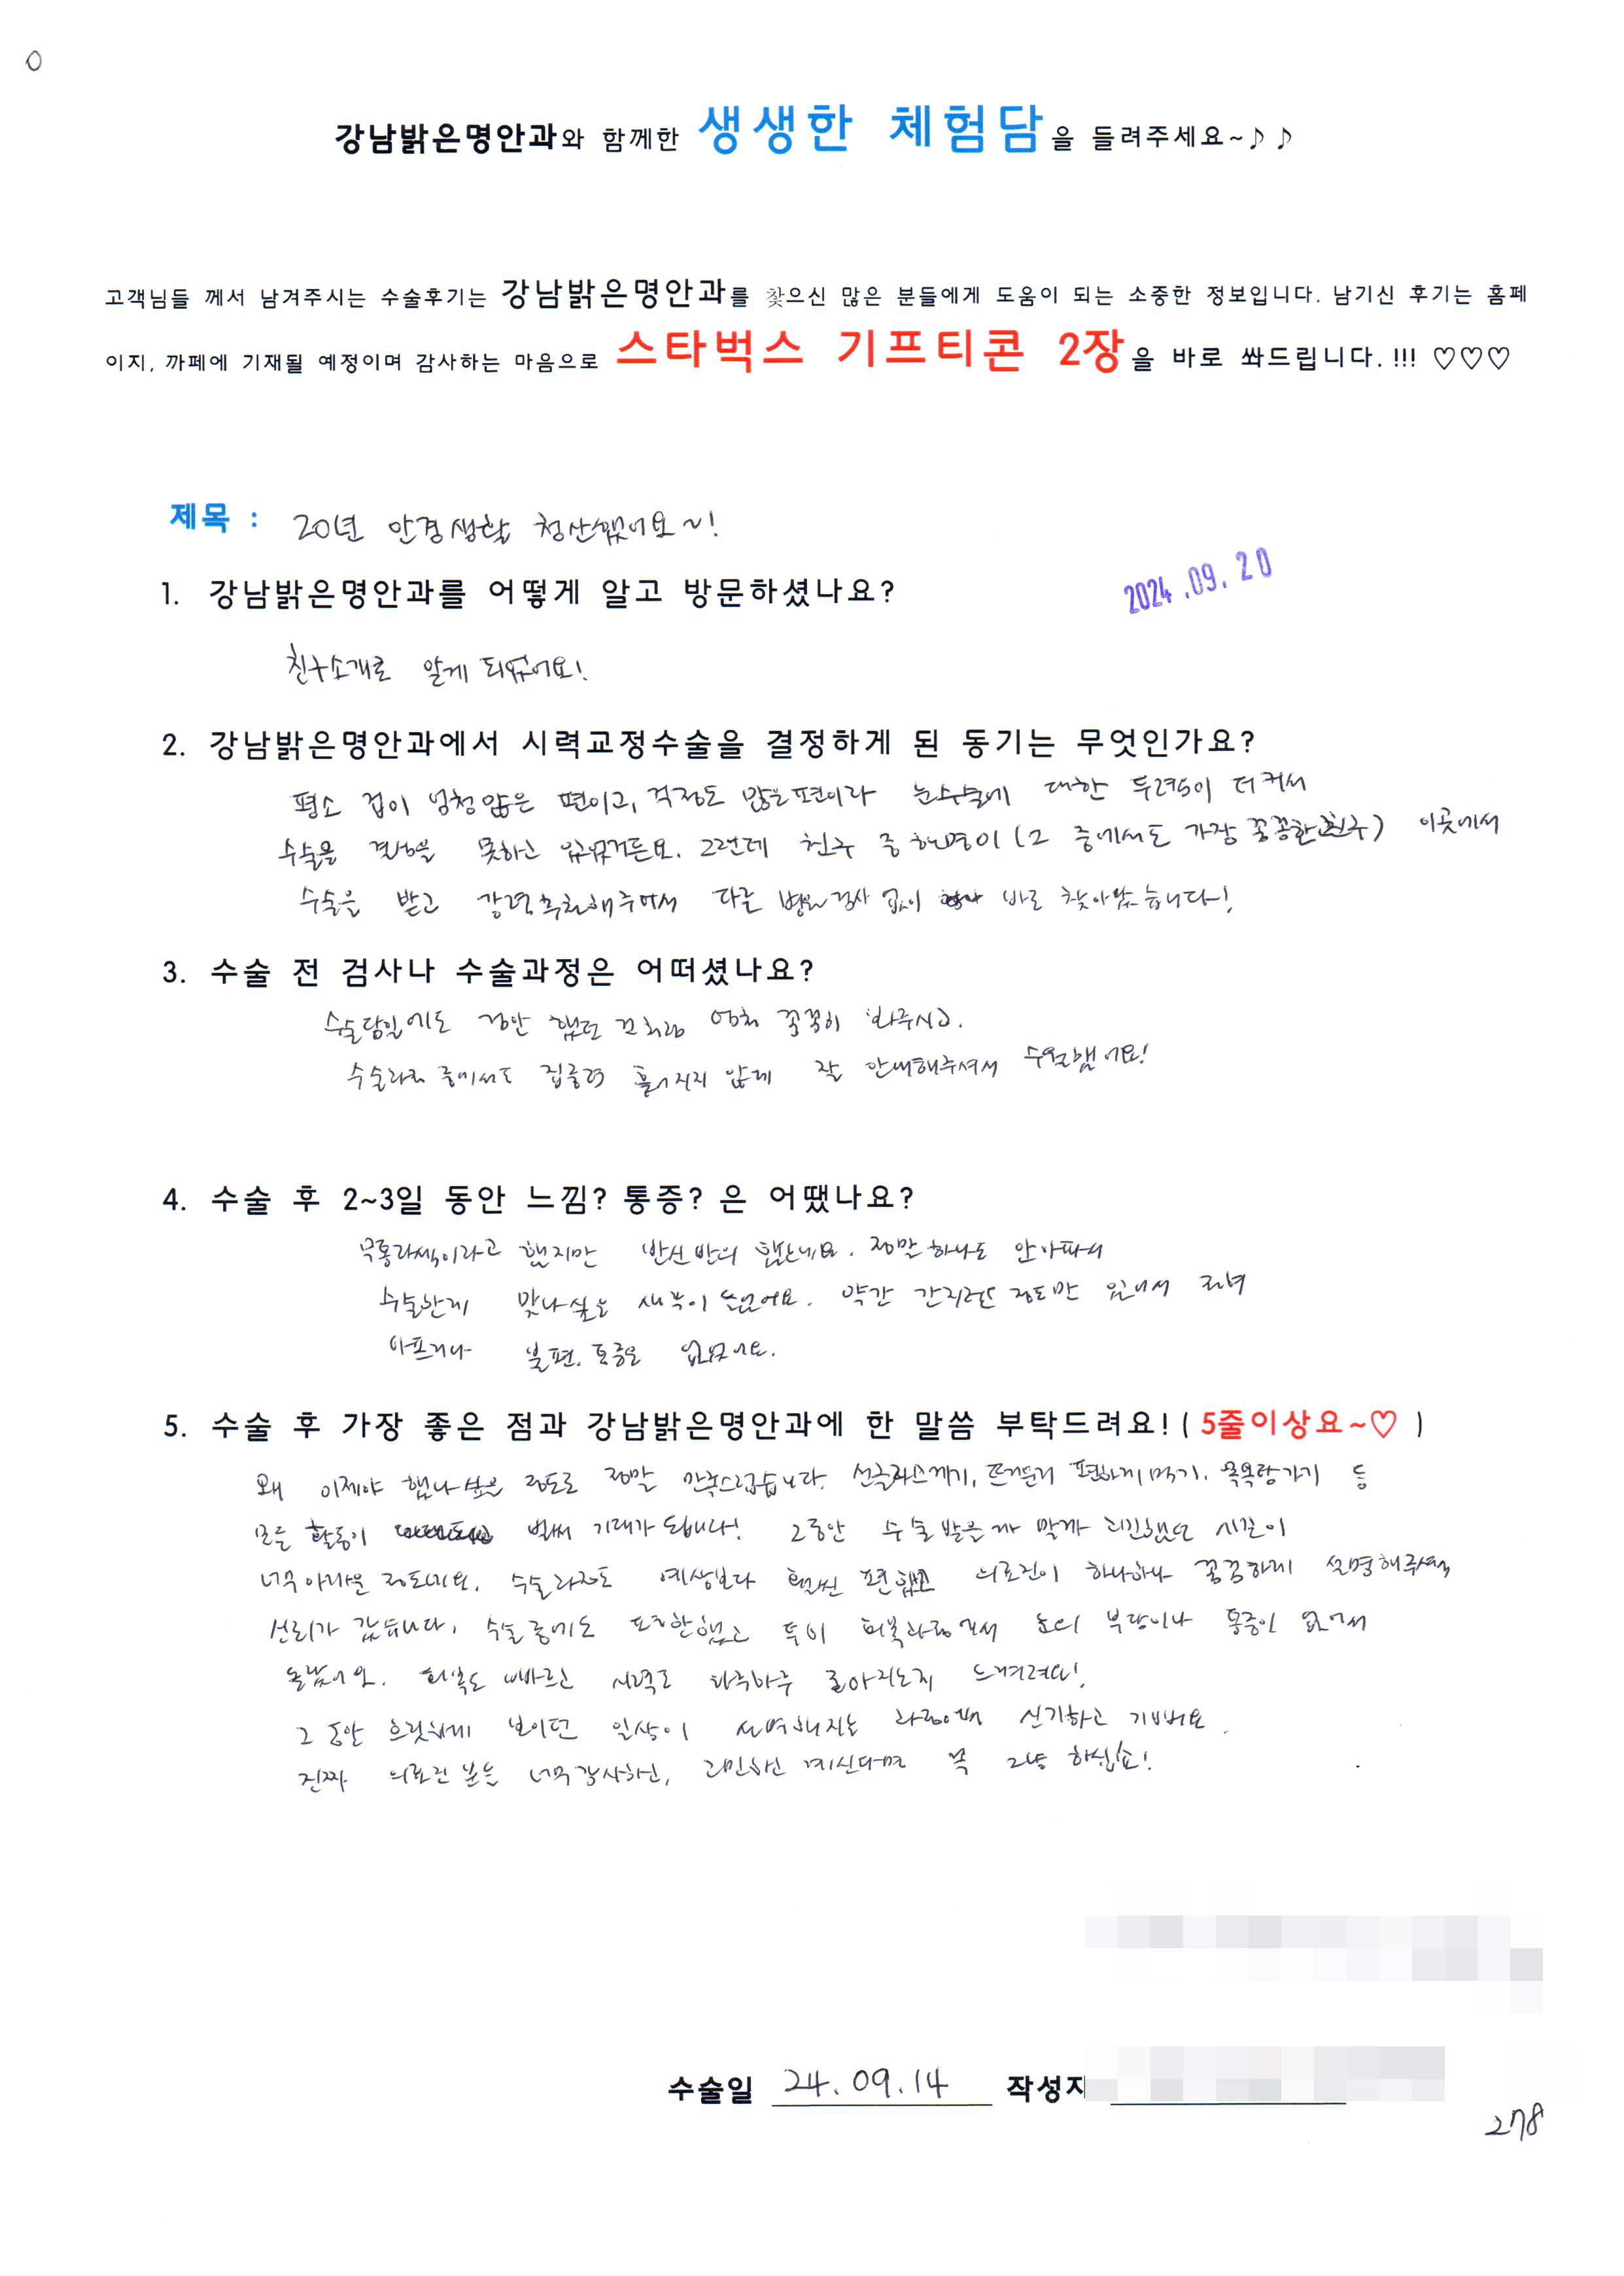 강남밝은명안과와 함께한 생생한 체험담을 들려주세요~♪♪
고객님들 께서 남겨주시는 수술후기는 강남밝은명안과를 찾으신 많은 분들에게 도움이 되는 소중한 정보입니다. 남기신 후기는 홈페
이지, 까페에 기재될 예정이며 감사하는 마음으로 스타벅스 기프티콘 2장을 바로 쏴드립니다.!!! ♡♡♡
제목 : 20년 안경생활 청산했어요~!
1. 강남밝은명안과를 어떻게 알고 방문하셨나요?
2024.09.20
친구소개로 알게 되었어요!
2. 강남밝은명안과에서 시력교정수술을 결정하게 된 동기는 무엇인가요?
평소 겁이 엄청 많은 편이고, 걱정도 많은편이라 눈수술에 대한 두려움이 더 커서
수술을 결정을 못하고 있었거든요. 그런데 친구 중 한명이 (그 중에서도 가장 꼼꼼한 친구) 이곳에서
수술을 받고 강력추천해주어서 다른 병원 검사 없이 바로 찾아왔습니다!
3. 수술 전 검사나 수술과정은 어떠셨나요?
수술당일에도 검안 했던 것처럼 엄청 꼼꼼히 봐주시고.
수술과정 중에서도 집중력 흩어지지 않게 잘 안내해주셔서 수월했어요!
4. 수술 후 2~3일 동안 느낌? 통증? 은 어땠나요?
무통라섹이라고 했지만 반신반의 했는데요. 정말 하나도 안아파서
수술한게 맞나 싶은 생각이 들었어요. 약간 간지러운 정도만 있어서 전혀
아프거나 불편, 통증은 없었어요.
5. 수술 후 가장 좋은 점과 강남밝은명안과에 한 말씀 부탁드려요!( 5줄이상요~♡ )
왜 이제야 했나 싶은 정도로 정말 만족스럽습니다. 선글라스끼기, 뜨거운거 편하게 먹기, 목욕탕가기 등
모든 활동이 벌써 기대가 됩니다! 그동안 수술 받을까 말까 고민했던 시간이
너무 아까운 정도네요. 수술과정도 예상보다 훨씬 편했고 의료진이 하나하나 꼼꼼하게 설명해주셔서
신뢰가 갔습니다. 수술 중에도 편안했고 특히 회복과정에서 눈의 부담이나 통증이 없어서
놀랐어요. 회복도 빠르고 시력도 하루하루 좋아지는게 느껴져요!
그 동안 흐릿하게 보이던 일상이 선명해지는 과정에 신기하고 기뻐요.
진짜 의료진 분들 너무 감사하고, 고민하고 계신다면 꼭 그냥 하십쇼!
수술일 24.09.14 작성자
278